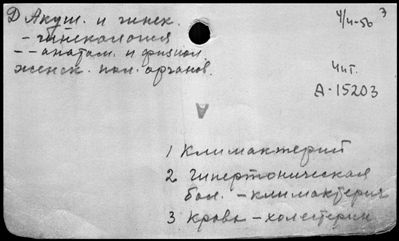 Д Акуш. и гинек.
- гинекология
-- анатом. и физиол.
женск. пол. органов.
4/4-56 3
Чит.
А-15203
А
1 Климактерий
2 Гипертоническая
бол. - климактерич
3 Кровь - холестерин